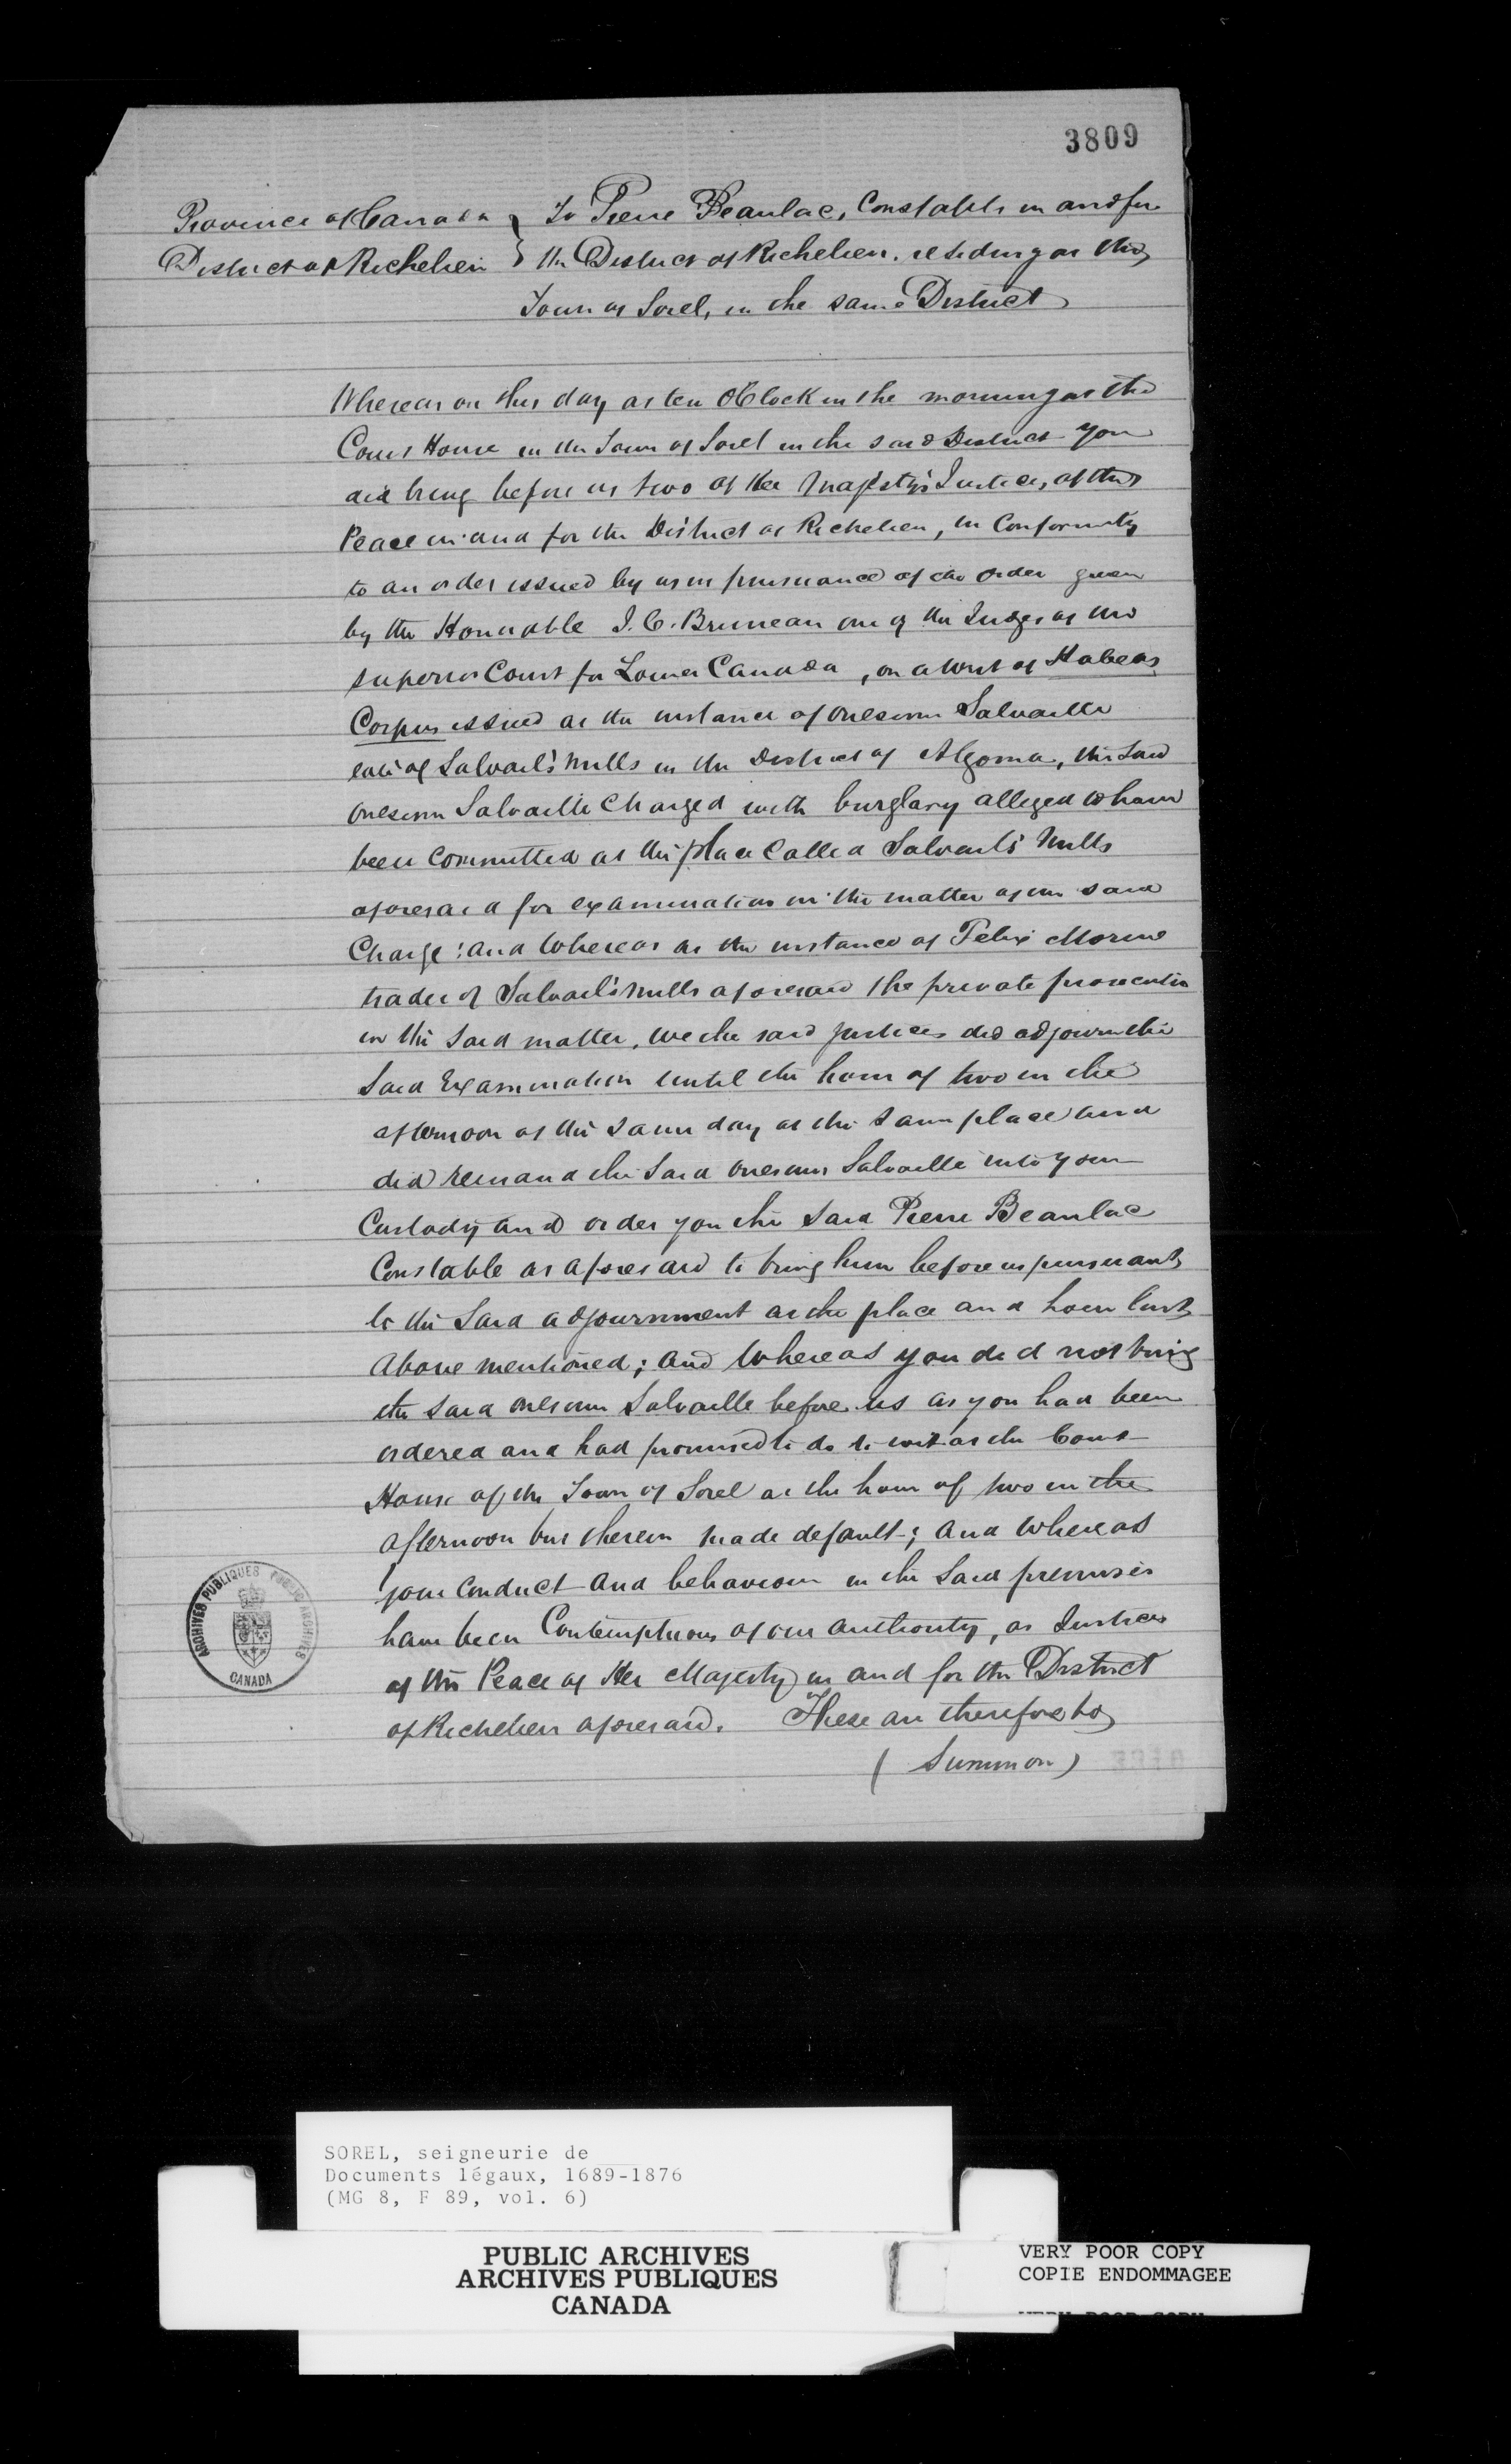 3809
Province of Canada } To Pierre Beaulac, Constable in and for
District of Richelieu } the District of Richelieu, residing at the
Town of Sorel, in the same District
Whereas on this day at ten O'Clock in the morning at the
Court House in the Town of Sorel in the said District you
did bring before us two of Her Majesty's Justices, of the
Peace in and for the District of Richelieu, in Conformity
to an order issued by us in pursuance of the order given
by the Honorable J. C. Bruneau one of the Judges of the
Superior Court for Lower Canada, on a Writ of Habeas
Corpus issued at the instance of Onesime Salvaille
late of Salvail's Mills in the District of Algoma, the said
Onesime Salvaille Charged with burglary alleged to have
been Committed at the place Called Salvail's Mills
aforesaid for examination in the matter of the said
Charge; and Whereas at the instance of Felix Morin
trader of Salvail's Mills aforesaid the private prosecutor
in the said matter, we the said justices did adjourn the
said Examination until the hour of two in the
afternoon of the same day at the same place and
did remand the said Onesime Salvaille into your
Custody and order you the said Pierre Beaulac
Constable as aforesaid to bring him before us pursuant
to the said adjournment at the place and hour last
above mentioned; and Whereas you did not bring
the said Onesime Salvaille before us as you had been
ordered and had promised to do to wit at the Court
House of the Town of Sorel at the hour of two in the
afternoon but therein made default; and whereas
your Conduct and behaviour in the said premises
have been Contemptuous of our authority, as Justices
of the Peace of Her Majesty in and for the District
of Richelieu aforesaid. These are therefore to
(Summon)
ARCHIVES PUBLIQUES PUBLIC ARCHIVES
CANADA
SOREL, seigneurie de
Documents légaux, 1689-1876
(MG 8, F 89, vol. 6)
PUBLIC ARCHIVES
ARCHIVES PUBLIQUES
CANADA
VERY POOR COPY
COPIE ENDOMMAGEE
VERY POOR COPY